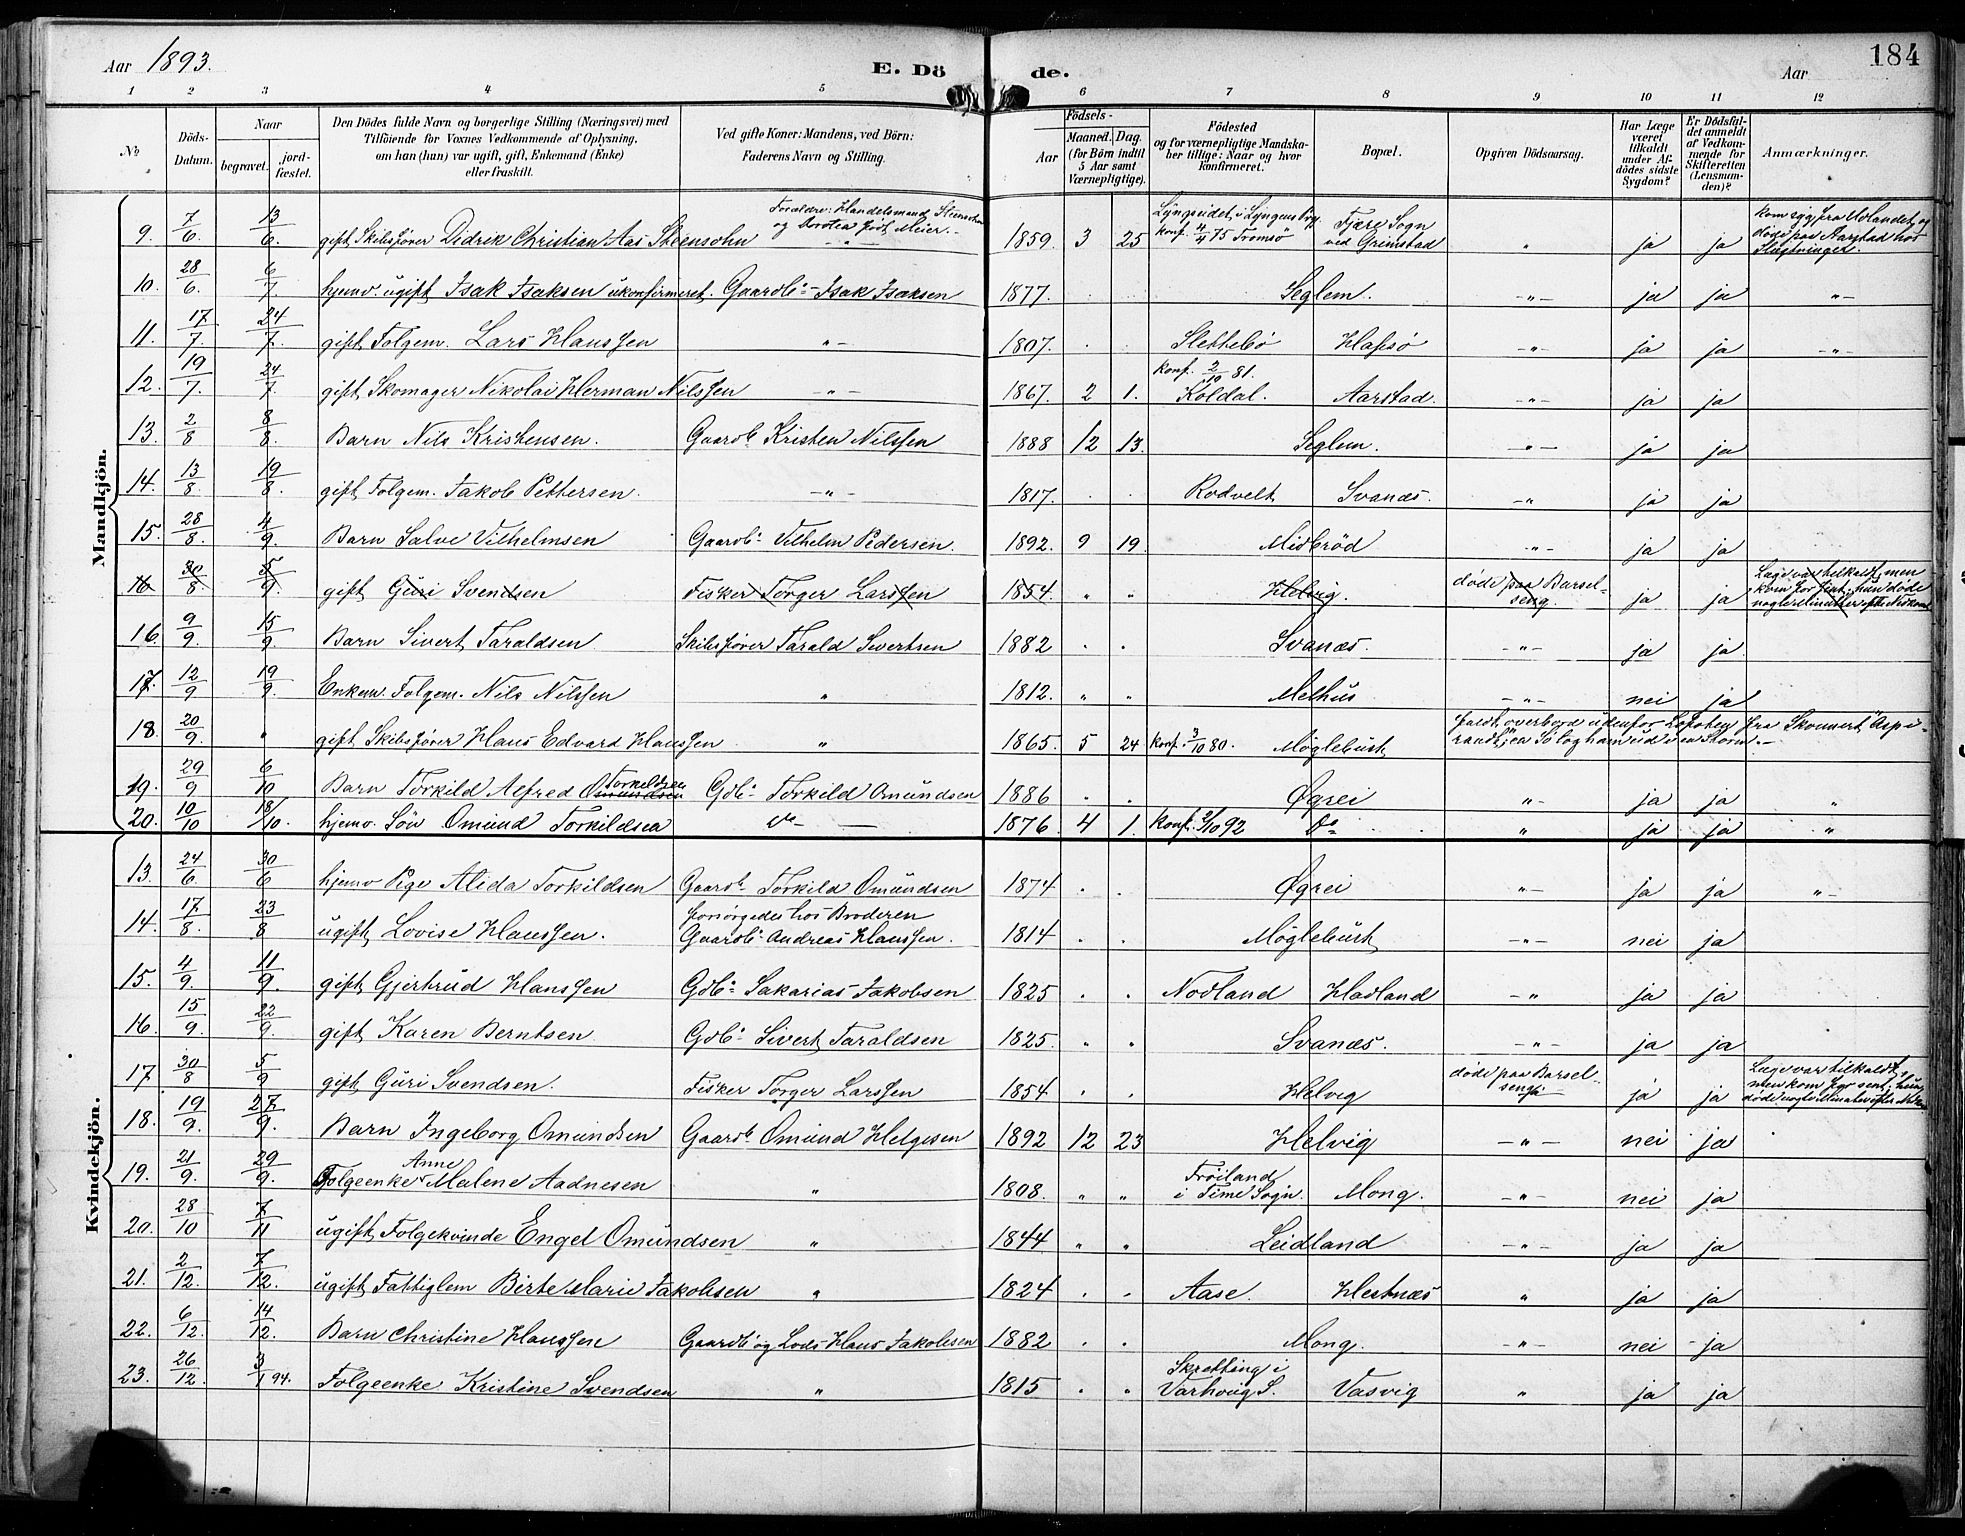 Aar 1893.
E. Dö de.
Aar
184
1 2 3 4 5 6 7 8 9 10 11 12
No
Döds-Datum.
Naar
begravet.
jord-fæstet.
Den Dödes fulde Navn og borgerlige Stilling (Næringsvei) med
Tilföiende for Voxnes Vedkommende af Oplysning,
om han (hun) var ugift, gift, Enkemand (Enke)
eller fraskilt.
Ved gifte Koner: Mandens, ved Börn:
Faderens Navn og Stilling.
Födsels-
Aar
Maaned. Dag.
(for Börn indtil
5 Aar samt
Værnepligtige).
Födested
og for værnepligtige Mandska-
ber tillige: Naar og hvor
konfirmeret.
Bopæl.
Opgiven Dödsaarsag.
Har Læge
været
tilkaldt
under Af-
dödes sidste
Sygdom?
Er Dödsfal-
det anmeldt
af Vedkom-
mende for
Skifteretten
(Lensman-
den)?
Anmærkninger.
Mandkjön.
9. 7/6. 13/6. gift Skibsfører Didrik Christian Aas Steensohn Forældre: Handelsmand Steensohn og Dorotea født Meier. 1859. 3 25 Lyngseidet i Lyngens Prg. konf. 4/4 75 Tromsø Fjære Sogn ved Grimstad " ja ja kom syg fra Udlandet og døde paa Aarstad hos Slægtninger.
10. 28/6. 6/7. hjemv. ugift Isak Isaksen ukonfirmeret. Gaardb: Isak Isaksen 1877. Seglem. -"- ja ja -"-
11. 17/7. 24/7. gift Folgem. Lars Hanssen "- 1807. Slettebø Hafsø -"- ja ja -"-
12. 19/7. 24/7. gift Skomager Nikolai Herman Nilssen -"- 1867. 2 1. konf. 2/10 81. Koldal. Aarstad. -"- ja ja
13. 2/8 8/8. Barn Nils Kristensen. Gaardb. Kristen Nilssen 1888 12 13. Seglem. -"- ja ja
14. 13/8. 19/8. gift Folgem. Jakob Pettersen. -"- 1817. Rodvelt Svanæs. -"- ja ja
15. 28/8. 4/9. Barn Salve Vilhelmsen Gaardb: Vilhelm Pedersen. 1892. 9 19. Midbrød -"- ja ja
16 30/8 5/9. gift Guri Svendsen Fisker Torger Larssen 1854. " " Helvig. døde paa Barsel-seng. ja ja Læge var tilkaldt, men kom for sent; hun døde nogle Minutter efter Nedkomst
16. 9/9. 15/9. Barn Sivert Taraldsen. Skibsfører Tarald Sivertsen 1882 Svanæs. -"- ja ja
17. 12/9 19/9. Enkem. Folgem. Nils Nilssen " 1812. " " Melhus -"- nei ja
18. 20/9. " gift Skibsfører Hans Edvard Hanssen " 1865. 5 24 konf. 3/10 80. Møglebust faldt overbord udenfor Lofoten fra Skonnert "Aspirandt"
19. 29/9 6/10 Barn Torkild Alfred Omundsen Torkildsen Gdb: Torkild Omundsen 1886 Øgrei " ja ja "
20. 10/10 18/10. hjemv. Søn Omund Torkildsen do 1876. 4 1. konf. 2/10 92 do " ja ja "
Kvindekjön.
13. 24/6. 30/6 hjemv Pige Alida Torkildsen Gaardb. Torkild Omundsen 1874 Øgrei -"- ja ja -"-
14. 17/8. 23/8 ugift Lovise Hanssen. forsørgedes hos Broderen Gaardb: Andreas Hanssen. 1814 Møglebust -"- nei ja
15. 4/9. 11/9. gift Gjertrud Hanssen Gdb: Sakarias Jakobsen 1825 Nodland Hadland -"- ja ja
16. 15/9. 22/9. gift Karen Berntsen Gdb: Sivert Taraldsen 1825. " " Svanæs. -"- ja ja
17. 30/8 5/9 gift Guri Svendsen. Fisker Torger Larssen 1854 Helvig døde paa Barsel-seng ja ja Læge var tilkaldt, men kom for sent; hun døde nogle Minutter efter
18. 19/9. 27/9. Barn Ingeborg Omundsen Gaardb. Omund Helgesen 1892 12 23 Helvig -"- nei ja
19. 21/9. 29/9. Folgeenke Anne Malene Aadnesen " 1808. " " Frøiland i Time Sogn. Mong. -"- nei ja
20. 28/10 7/11 ugift Folgekvinde Engel Omundsen " 1844 " " Leidland -"- ja ja
21. 2/12. 7/12. ugift Fattiglem Birte Marie Jakobsen " 1824 Aase. Hestnæs " ja ja
22. 6/12. 14/12. Barn Christine Hanssen Gaardb. og Lods Hans Jakobsen 1882 Mong. -"- nei ja
23. 26/12. 3/1 94. Folgeenke Kristine Svendsen " 1815 " Skretting i Varhoug S. Vasvig " ja ja